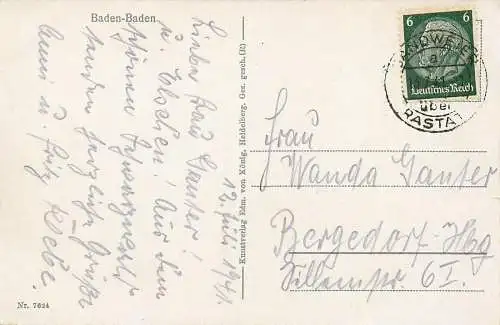 Baden-Baden
12. Juli 1941.
Liebe Frau Ganter!
u. Elschen! Aus dem
schönen Schwarzwald
senden herzliche Grüße
u. Fritz
Nr. 7624
Kunstverlag Edm. von König, Heidelberg. Ges. gesch. (R)
6
6
Deutsches Reich
SANDWEIER
a
über
RASTA
Frau
Wanda Ganter
Bergedorf-Hbg
6 I.